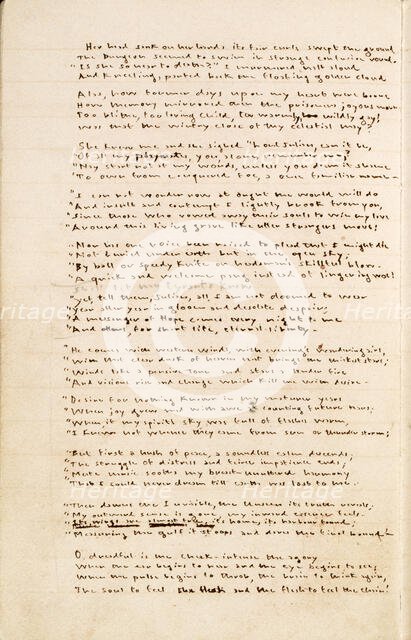 Her head sank on her hands its fair curls swept the ground
The Dungeon seemed to swim in strange confusion round—
"Is she so near to death?" I murmured half aloud
And kneeling, parted back the floating golden cloud
Alas, how former days upon my heart were borne
How memory mirrored then the prisoner's joyous morn—
Too blithe, too loving child, too warmly, wildly gay!
Was that the wintry close of thy celestial May?
She knew me and she sighed "Lord Julian, can it be,
"Of all my playmates, you, alone, remember me?
"Nay start not at my words, unless you deem it shame
"To own from conquered foe, a once familiar name—
"I can not wonder now at ought the world will do
"And insult and contempt I lightly brook from you,
"Since those who vowed away their souls to win my love
"Around this living grave like utter strangers move!
"Nor has one voice been raised to plead that I might die
"Not buried under earth but in the open sky;
"By ball or speedy knife or headsman's skilful blow—
"A quick and welcome pang instead of lingering woe!
my tyrants know
"Yet, tell them, Julian, all, I am not doomed to wear
"Year after year in gloom and desolate despair;
"A messenger of Hope comes every night to me
"And offers, for short life, eternal liberty—
"He comes with western winds, with evening's wandering airs,
"With that clear dusk of heaven that brings the thickest stars;
"Winds take a pensive tone and stars a tender fire
"And visions rise and change which kill me with desire—
"Desire for nothing known in my maturer years
"When joy grew mad with awe at counting future tears;
"When, if my spirit's sky was full of flashes warm,
"I knew not whence they came from sun or thunder storm;
"But first a hush of peace, a soundless calm descends;
"The struggle of distress and fierce impatience ends;
"Mute music sooths my breast—unuttered harmony
"That I could never dream till earth was lost to me.
"Then dawns the Invisible, the Unseen its truth reveals;
"My outward sense is gone, my inward essence feels—
"Its wings are almost free, its home, its harbour found;
"Measuring the gulf it stoops and dares the final bound!
O, dreadful is the check—intense the agony
When the ear begins to hear and the eye begins to see;
When the pulse begins to throb, the brain to think again,
The soul to feel the flesh and the flesh to feel the chain!